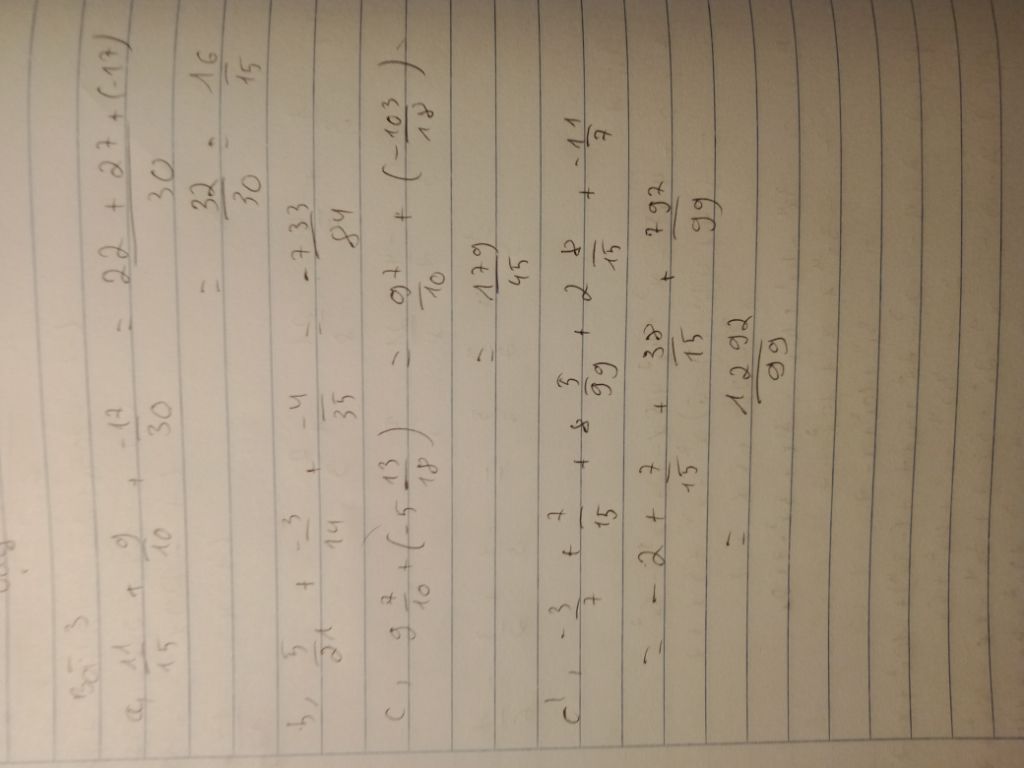 Bài 3
a, 11/15 + 9/10 + -17/30 = 22 + 27 + (-17)/30
= 32/30 = 16/15
b, 5/21 + -3/14 + -4/35 = -733/84
c, 9 7/10 + (-5 13/18) = 97/10 + (-103/18)
= 179/45
d, -3/7 + 7/15 + 8 5/99 + 2 8/15 + -11/7
= -2 + 7/15 + 38/15 + 792/99
= 1292/99